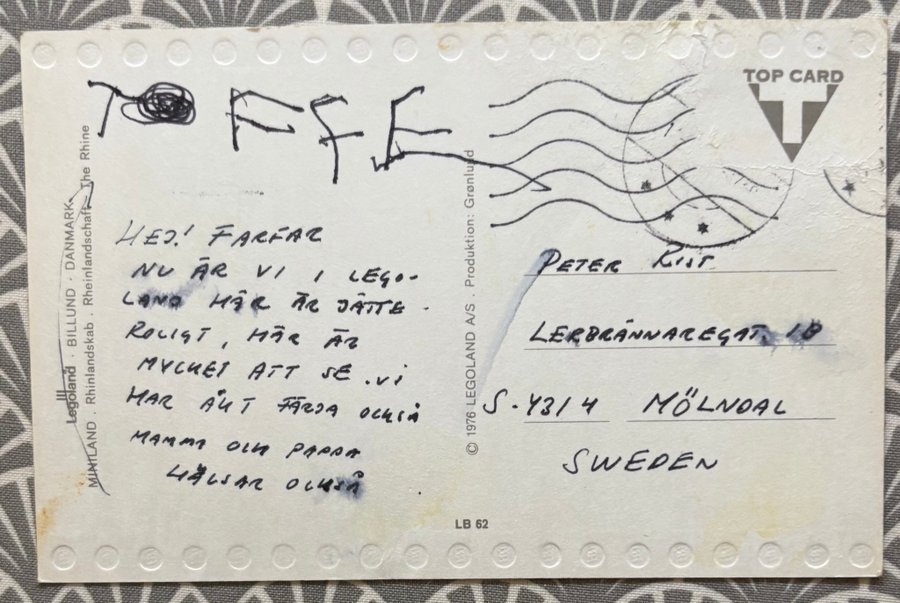 TOFFE
TOP CARD
T
HEJ! FARFAR
NU ÄR VI I LEGO-
LAND HÄR ÄR JÄTTE-
ROLIGT, HÄR ÄR
MYCKET ATT SE. VI
HAR ÅKT FÄRJA OCKSÅ
MAMMA OCH PAPPA
HÄLSAR OCKSÅ
PETER RIST
LERBRÄNNAREGAT. 1B
S-4314 MÖLNDAL
SWEDEN
Legoland · BILLUND · DANMARK
MINILAND . Rhinlandskab . Rheinlandschaft . The Rhine
© 1976 LEGOLAND A/S . Produktion: Grønlund
LB 62